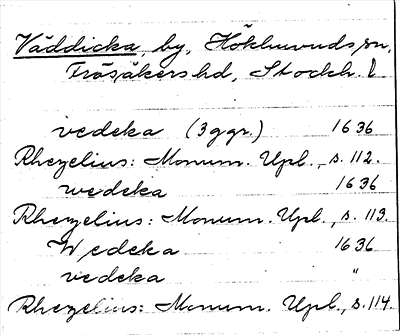 Väddicka, by, Hökhuvuds sn,
Frösåkers hd, Stockh. l
vedeka (3 ggr.) 1636
Rhezelius: Monum. Upl., s. 112.
wedeka 1636
Rhezelius: Monum. Upl., s. 113.
Wedeka 1636
vedeka "
Rhezelius: Monum. Upl., s. 114.